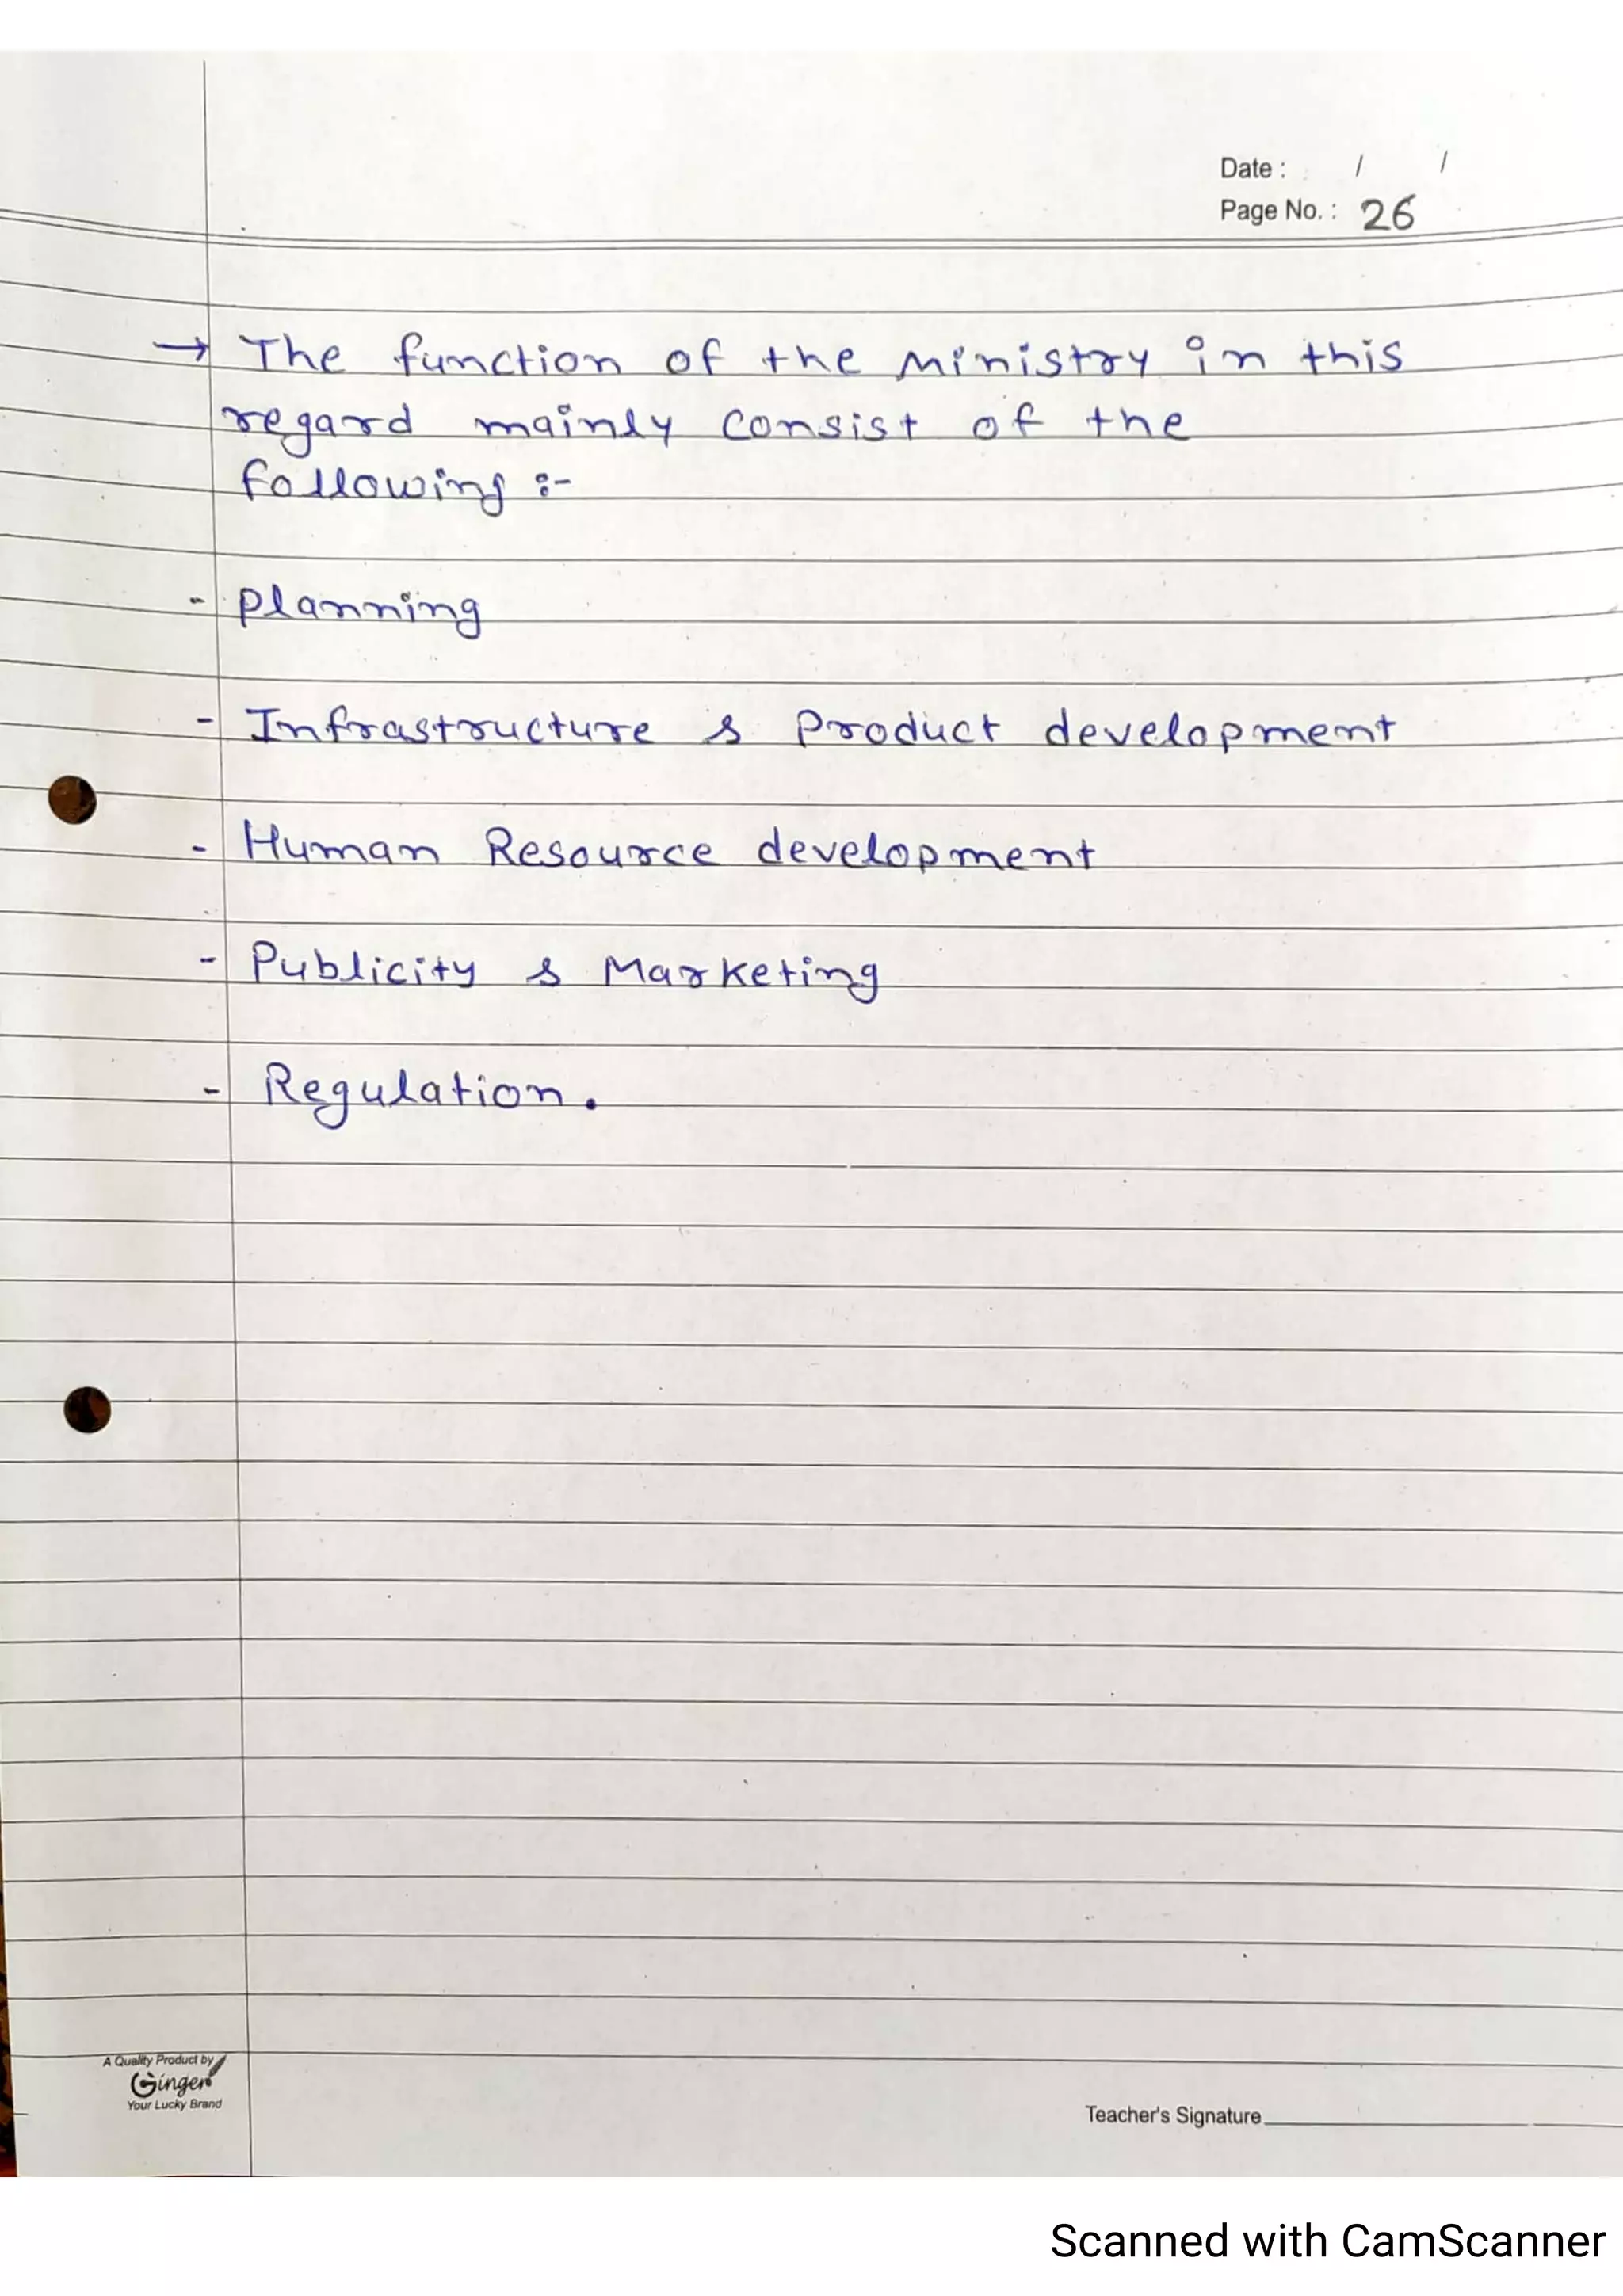 Date : / /
Page No. : 26
→ The function of the Ministry in this
regard mainly consist of the
following :-
- Planning
- Infrastructure & Product development
- Human Resource development
- Publicity & Marketing
- Regulation.
A Quality Product by
Ginger
Your Lucky Brand
Teacher's Signature
Scanned with CamScanner